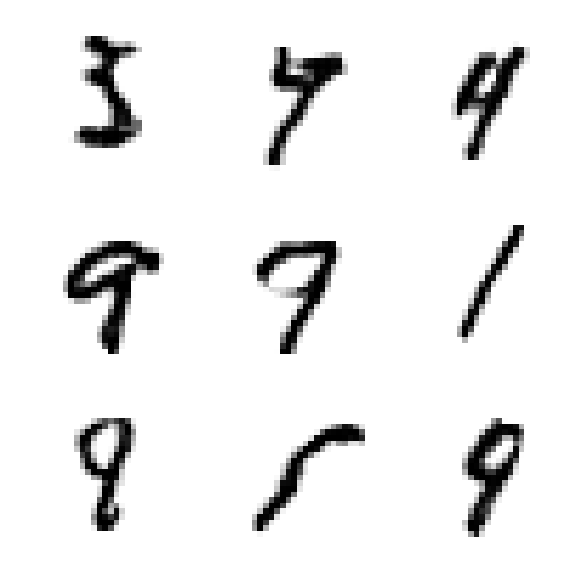 3 4
9 9 1
8 9